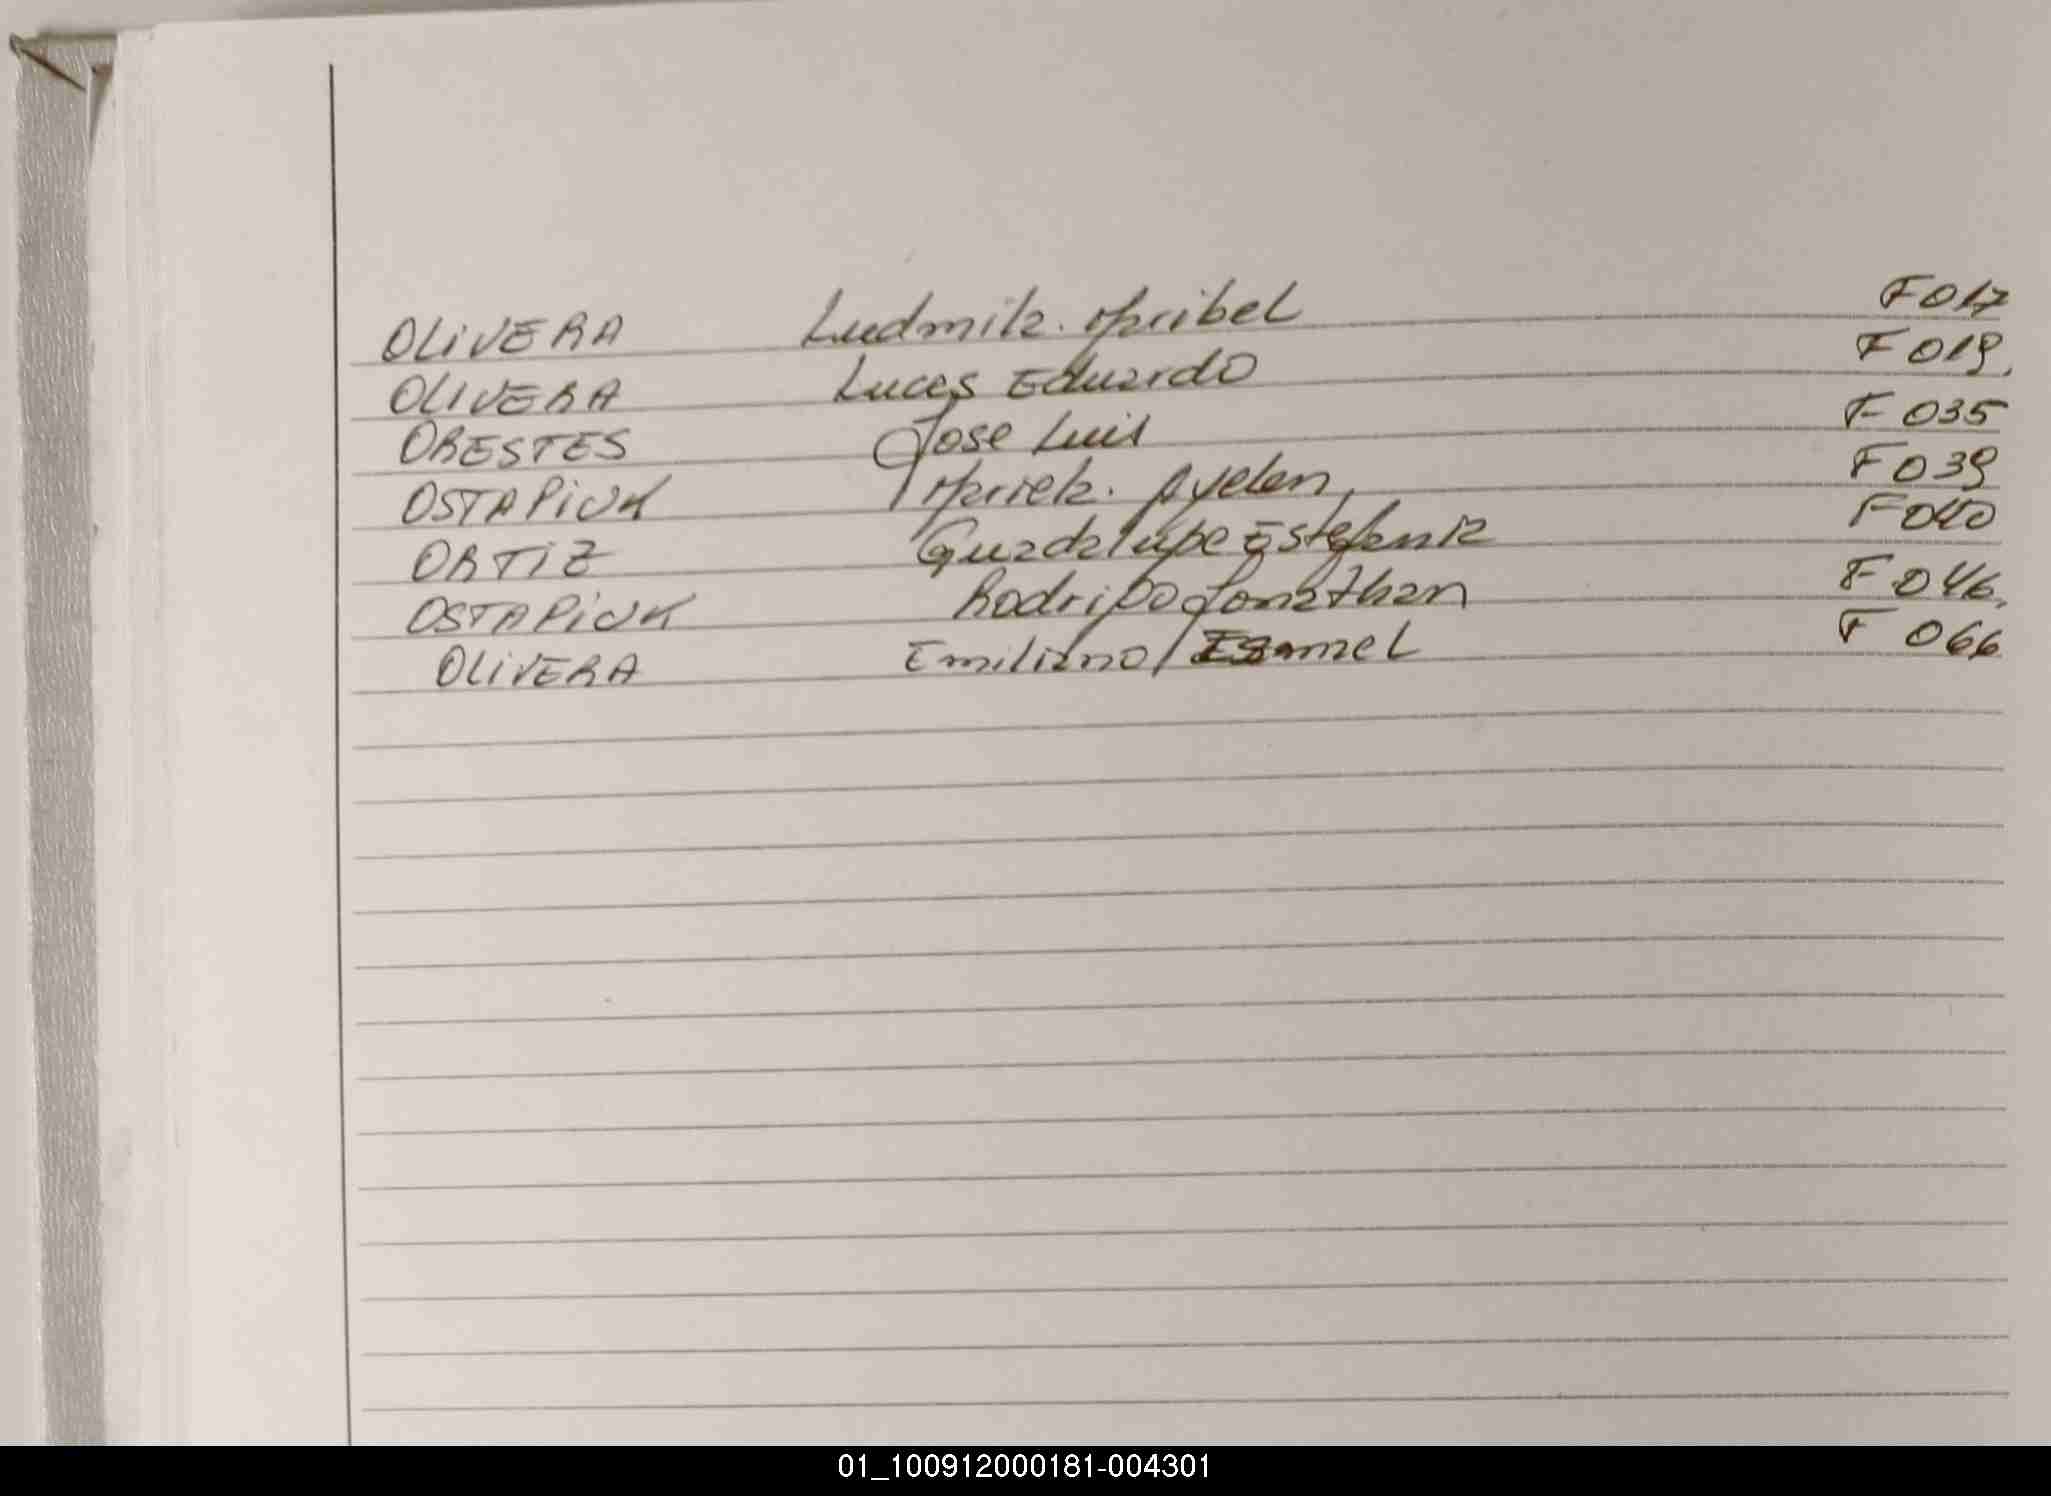 OLIVERA Ludmila Maribel F017
OLIVERA Lucas Eduardo F019.
ORESTES Jose Luis F 035
OSTAPIUK Mariela Ayelen F039
ORTIZ Guadalupe Estefania F040
OSTAPIUK Rodrigo Jonathan F 046.
OLIVERA Emiliano F 066
01_100912000181-004301